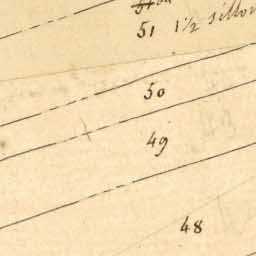 51 1/2 sillon
50
49
48